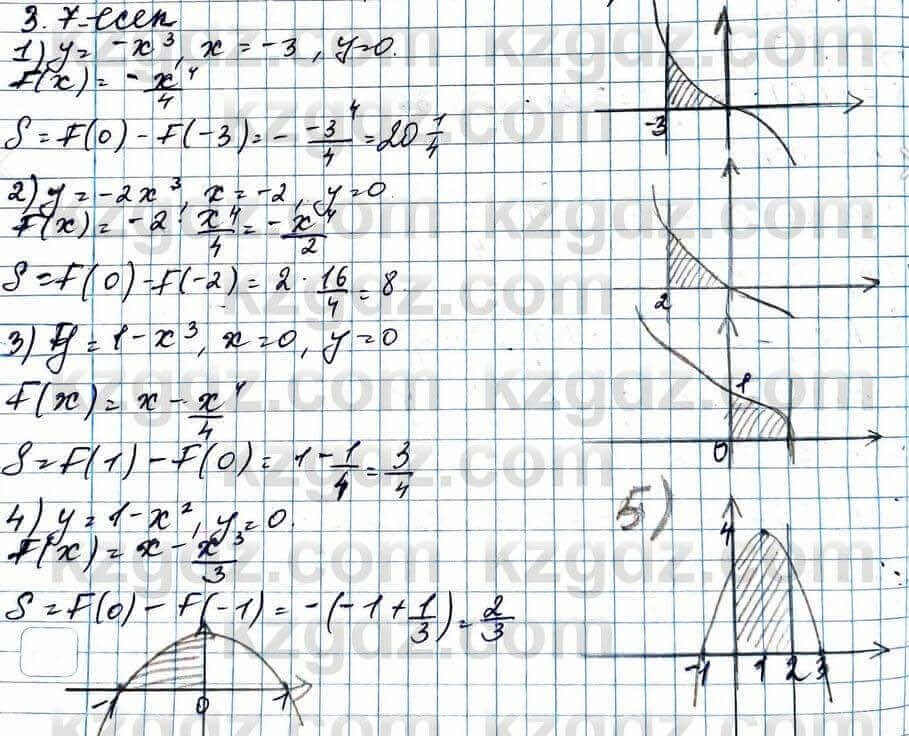 3.7-есеп
1) y = -x³, x = -3, y=0.
F(x) = -x⁴/4
S = F(0) - F(-3) = - -3⁴/4 = 20 1/4
-3
2) y = -2x³, x = -2, y=0.
F(x) = -2 · x⁴/4 = -x⁴/2
S = F(0) - F(-2) = 2 · 16/4 = 8
2
3) y = 1-x³, x=0, y=0
1
0
F(x) = x - x⁴/4
S = F(1) - F(0) = 1 - 1/4 = 3/4
4) y = 1-x², y=0.
F(x) = x - x³/3
S = F(0) - F(-1) = -(-1+1/3) = 2/3
-1 0 1
5)
4
-1 1 2 3
kzgdz.com